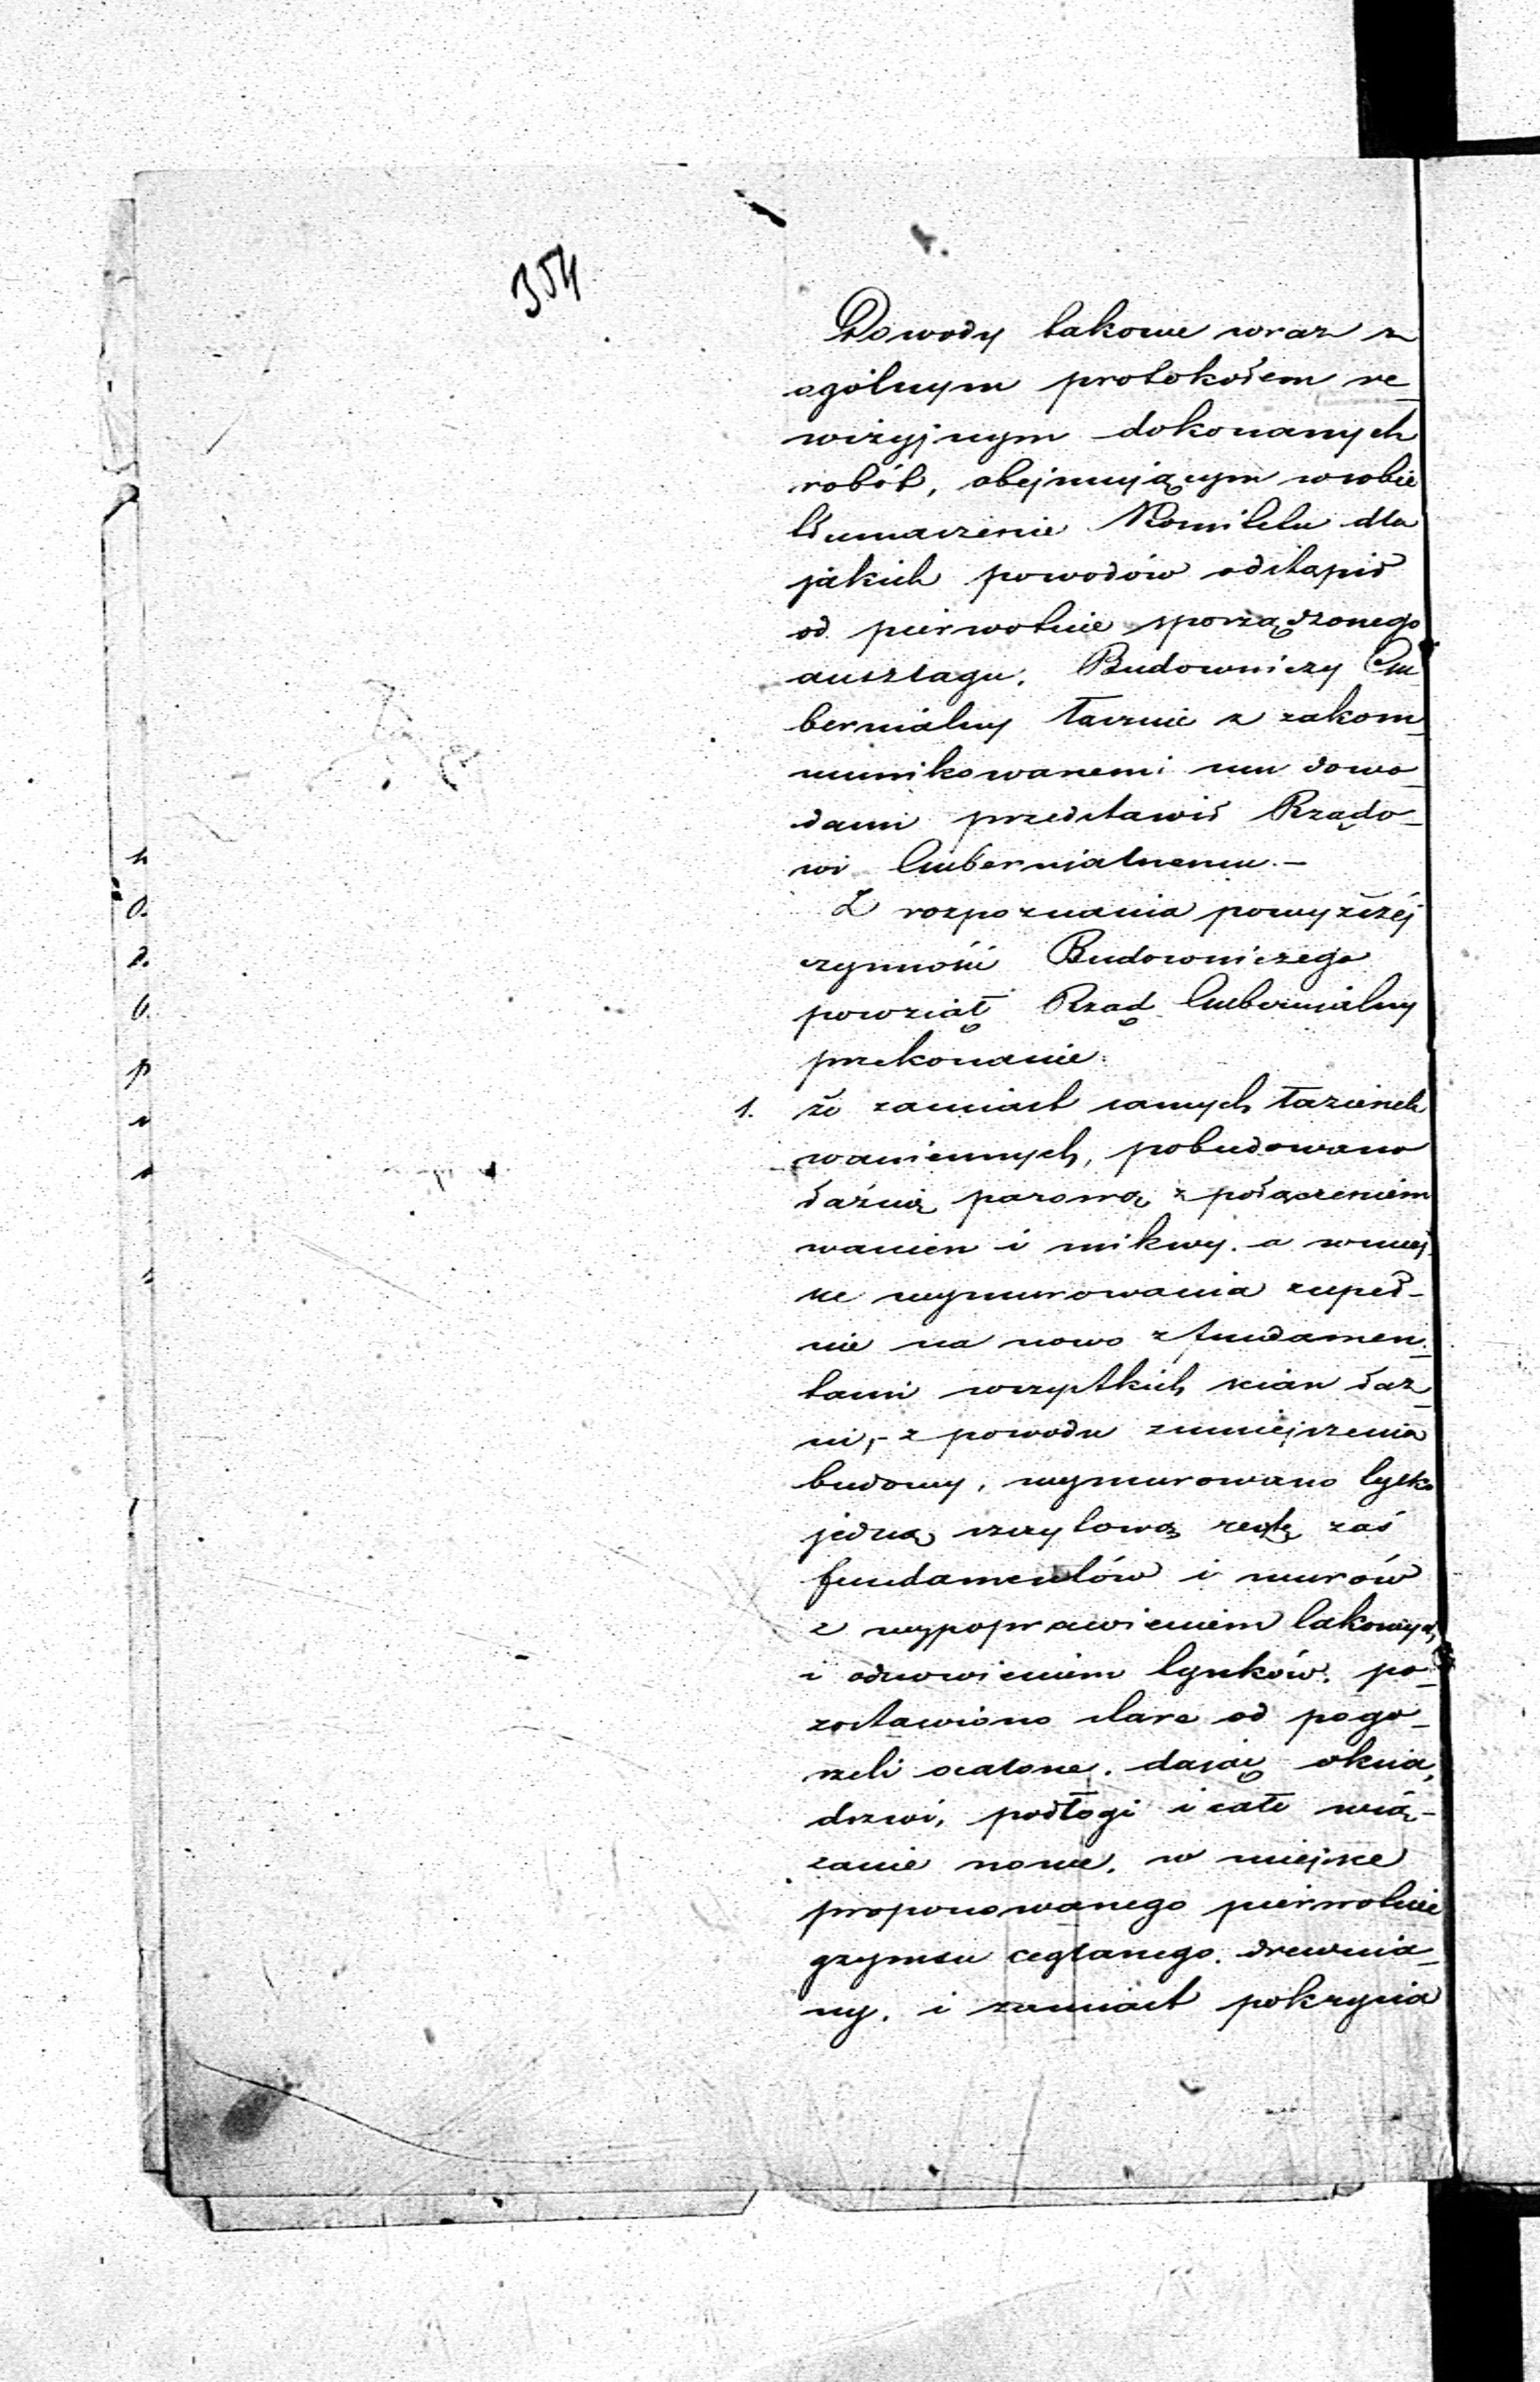 354
Dowody takowe wraz z
ogólnym protokołem re_
wizyjnym dokonanych
robót, obejmującym w sobie
tłumaczenie Komitetu dla
jakich powodów odstąpił
od pierwotnie sporządzonego
anszlagu, Budowniczy Gu_
bernialny łącznie z zakom_
munikowanemi mu dowo_
dami przedstawił Rządo_
wi Gubernialnemu.—
Z rozpoznania powyższéj
czynności Budowniczego
powziął Rząd Gubernialny
przekonanie:
1. że zamiast samych łazienek
waniennych, pobudowano
łaźnią parową z połączeniem
wanien i mikwy, a w miej_
sce wymurowania zupeł_
nie na nowo z fundamen_
tami wszystkich ścian łaz_
ni,- z powodu zmniejszenia
budowy, wymurowano tylko
jedną szczytową resztę zaś
fundamentów i murów
z wypoprawieniem takowych
i odnowieniem tynków, po_
zostawiono stare od pogo_
rzeli ocalone, dając okna,
drzwi, podłogi i całe wią_
zanie nowe, w miejsce
proponowanego pierwotnie
gzymsu ceglanego, drewnia_
ny, i zamiast pokrycia